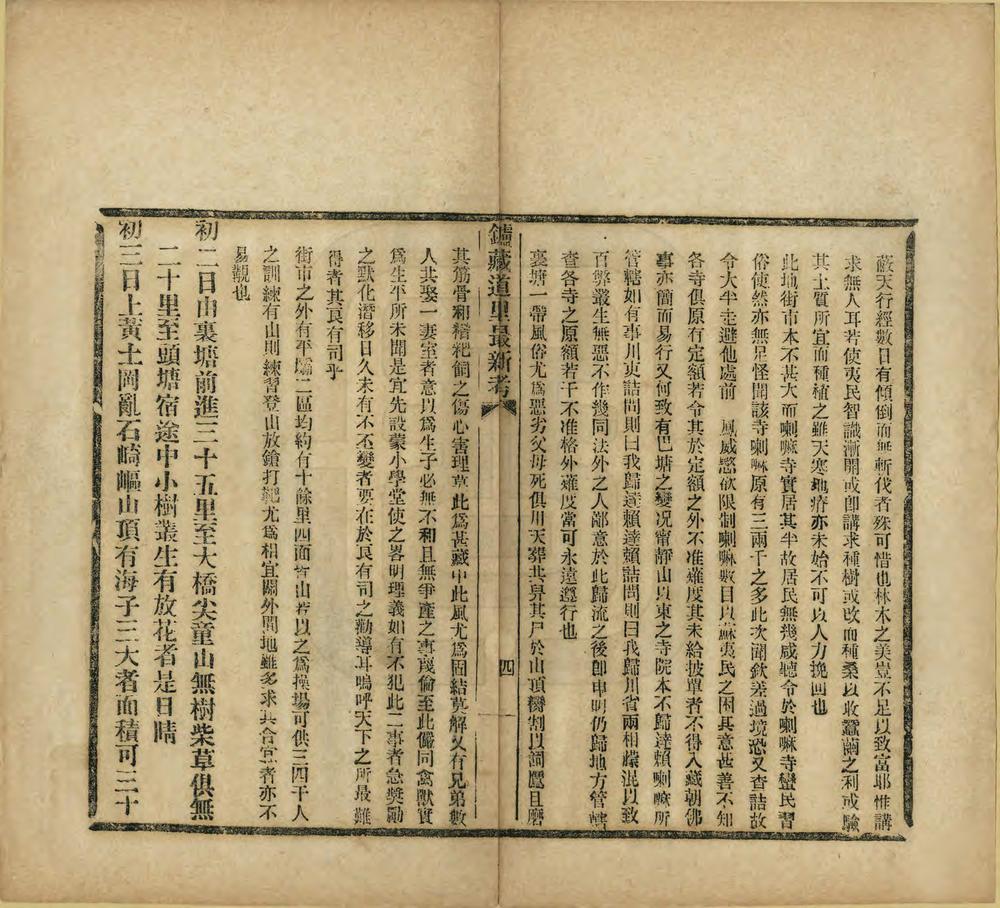 蔽天行經數日有傾倒而無斬伐者殊可惜也林木之美豈不足以致富耶惟講
求無人耳若使夷民智識漸開或卽講求種樹或改而種桑以收蠶繭之利或驗
其土質所宜而種植之雖天寒地瘠亦未始不可以人力挽回也
此地街市本不甚大而喇嘛寺實居其半故居民無幾咸聽令於喇嘛寺蠻民習
俗使然亦無足怪聞該寺喇嘛原有三兩千之多此次聞欽差過境恐又查詰故
令大半走避他處前 鳳威愍欲限制喇嘛數目以蘇夷民之困其意甚善不知
各寺俱原有定額若令其於定額之外不准薙度其未給披單者不得入藏朝佛
事亦簡而易行又何致有巴塘之變况甯靜山以東之寺院本不歸達賴喇嘛所
管轄如有事川吏詰問則曰我歸達賴達賴詰問則曰我歸川省兩相朦混以致
百弊叢生無惡不作幾同法外之人鄙意於此歸流之後卽申明仍歸地方管轄
查各寺之原額若干不准格外薙度當可永遠遵行也
裏塘一帶風俗尤爲惡劣父母死俱用天葬共舁其尸於山頂臠割以飼鷹且磨
鑪藏道里最新考
四
其筋骨和糌粑飼之傷心害理莫此爲甚藏中此風尤爲固結莫解又有兄弟數
人共娶一妻室者意以爲生子必無不和且無爭產之事蔑倫至此儼同禽獸實
爲生平所未聞是宜先設蒙小學堂使之畧明理義如有不犯此二事者急獎勵
之默化潛移日久未有不丕變者要在於良有司之勸導耳嗚呼天下之所最難
得者其良有司乎
街市之外有平壩二區均約有十餘里四面皆山若以之爲操場可供三四千人
之訓練有山則練習登山放鎗打靶尤爲相宜關外閒地雖多求其合宜者亦不
易覯也
初二日由裏塘前進三十五里至大橋尖童山無樹柴草俱無
二十里至頭塘宿途中小樹叢生有放花者是日晴
初三日上黃土岡亂石崎嶇山頂有海子三大者面積可三十